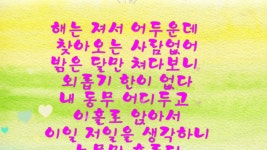 해는 져서 어두운데
찾아오는 사람없어
밝은 달만 쳐다보니
외롭기 한이 없다
내 동무 어디두고
이홀로 앉아서
이일 저일을 생각하니